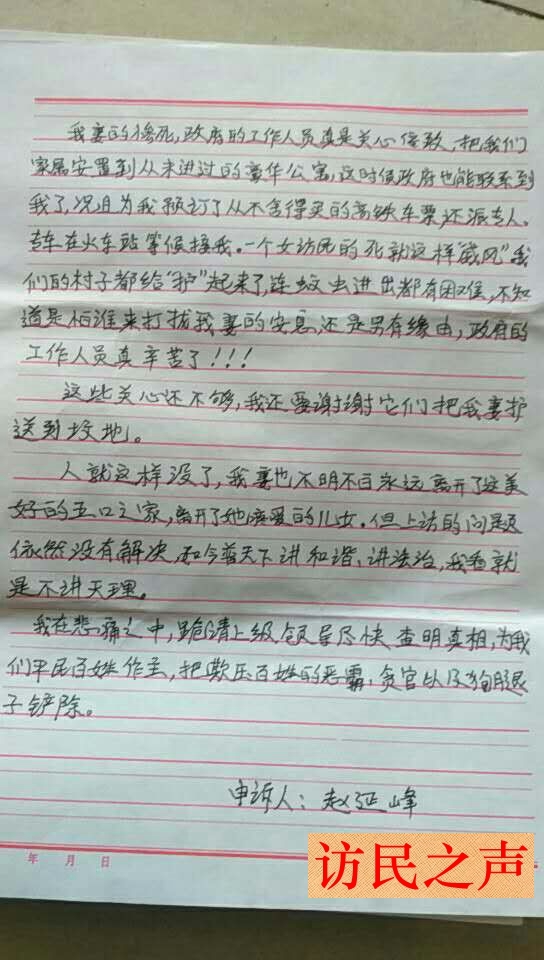 我妻的惨死,政府的工作人员真是关心倍致、把我们
家属安置到从未进过的豪华公寓,这时候政府也能联系到
我了,况且为我预订了从不舍得买的高铁车票,还派专人、
专车在火车站等候接我。一个女访民的死就这样"威风"我
们的村子都给"护"起来了,连蚊虫进出都有困难,不知
道是怕谁来打扰我妻的安息,还是另有缘由,政府的
工作人员真辛苦了!!!
这些关心还不够,我还要谢谢它们把我妻护
送到坟地。
人就这样没了,我妻也不明不白永远离开了这美
好的五口之家,离开了她疼爱的儿女。但上访的问题
依然没有解决,如今普天下讲和谐、讲法治,我看就
是不讲天理。
我在悲痛之中,跪请上级领导尽快查明真相,为我
们平民百姓作主,把欺压百姓的恶霸、贪官以及狗腿
子铲除。
申诉人:赵延峰
年 月 日
访民之声